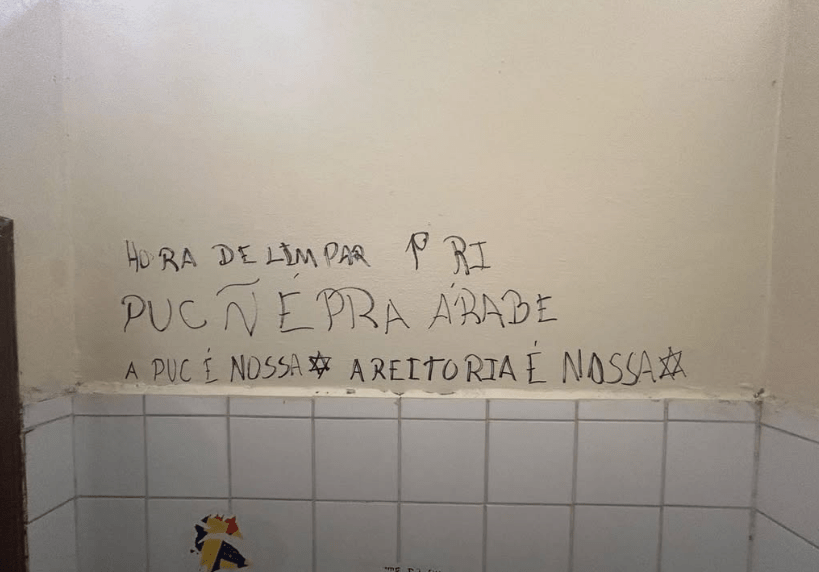 HORA DE LIMPAR 1º RI
PUC Ñ É PRA ÁRABE
A PUC É NOSSA ✡ A REITORIA É NOSSA ✡